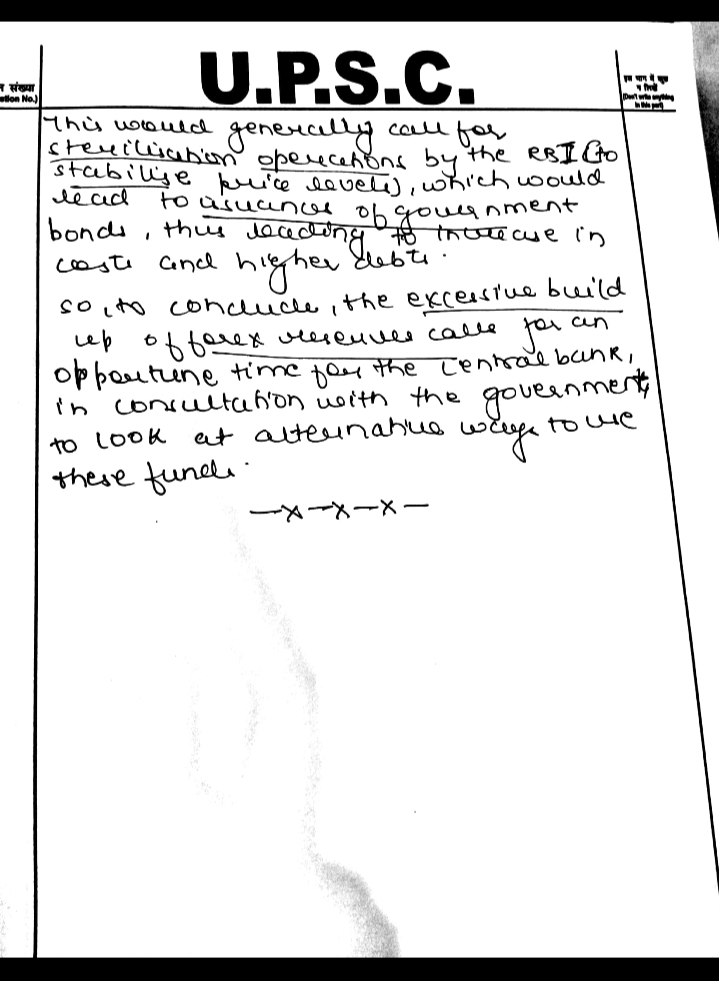 U.P.S.C.
न संख्या
stion No.)
इस भाग में कुछ
न लिखें
(Don't write anything
in this part)
This would generally call for
sterilisation operations by the RBI (to
stabilise price levels), which would
lead to issuances of government
bonds, thus leading to increase in
costs and higher debts.
so, to conclude, the excessive build
up of forex reserves calls for an
opportune time for the central bank,
in consultation with the government,
to look at alternative ways to use
these funds.
—x—x—x—